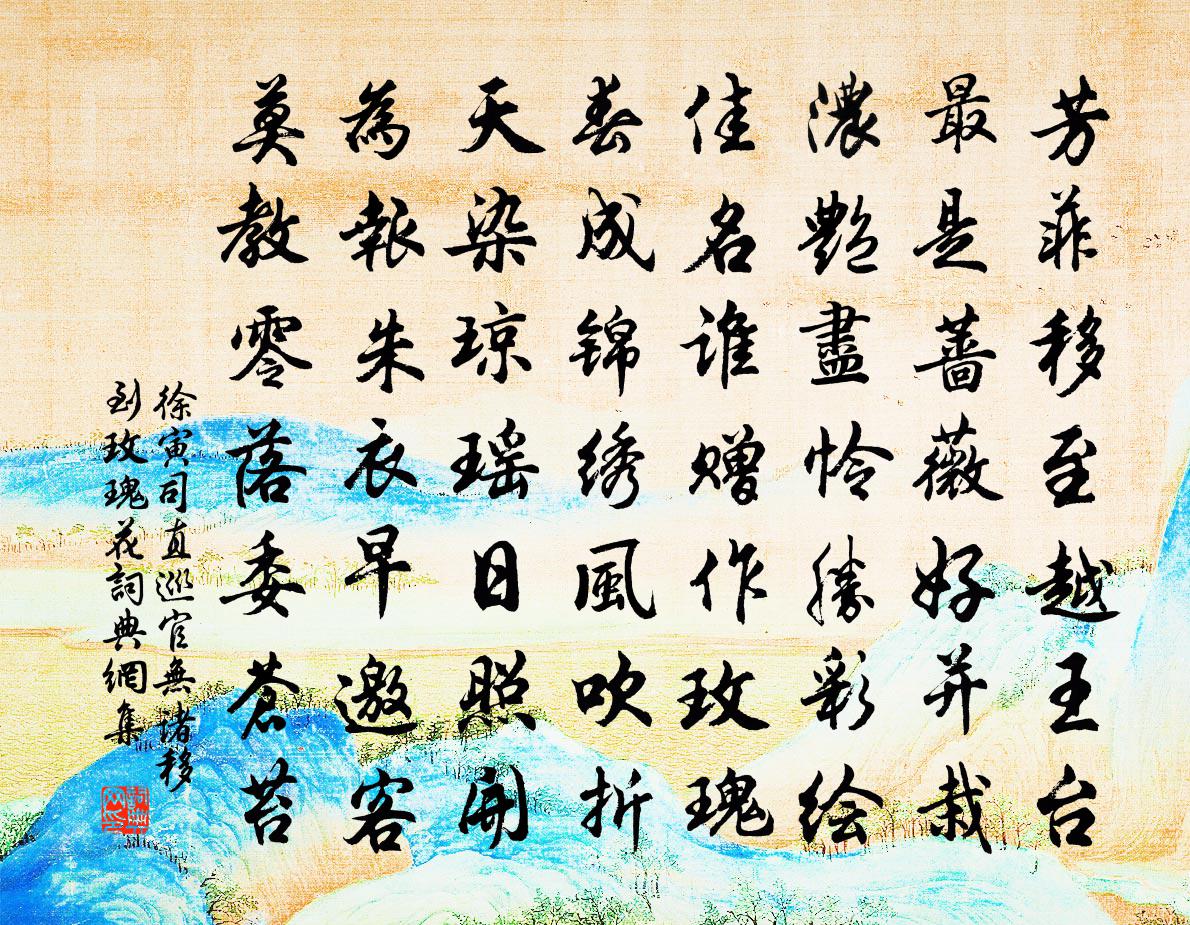 芳菲移至越王台
最是蔷薇好并栽
濃艷盡怜勝彩绘
佳名谁赠作玫瑰
春成锦绣風吹折
天染琼瑶日照開
為報朱衣早邀客
莫教零落委蒼苔
徐寅司直巡官無诸移
到玫瑰花詞典網集